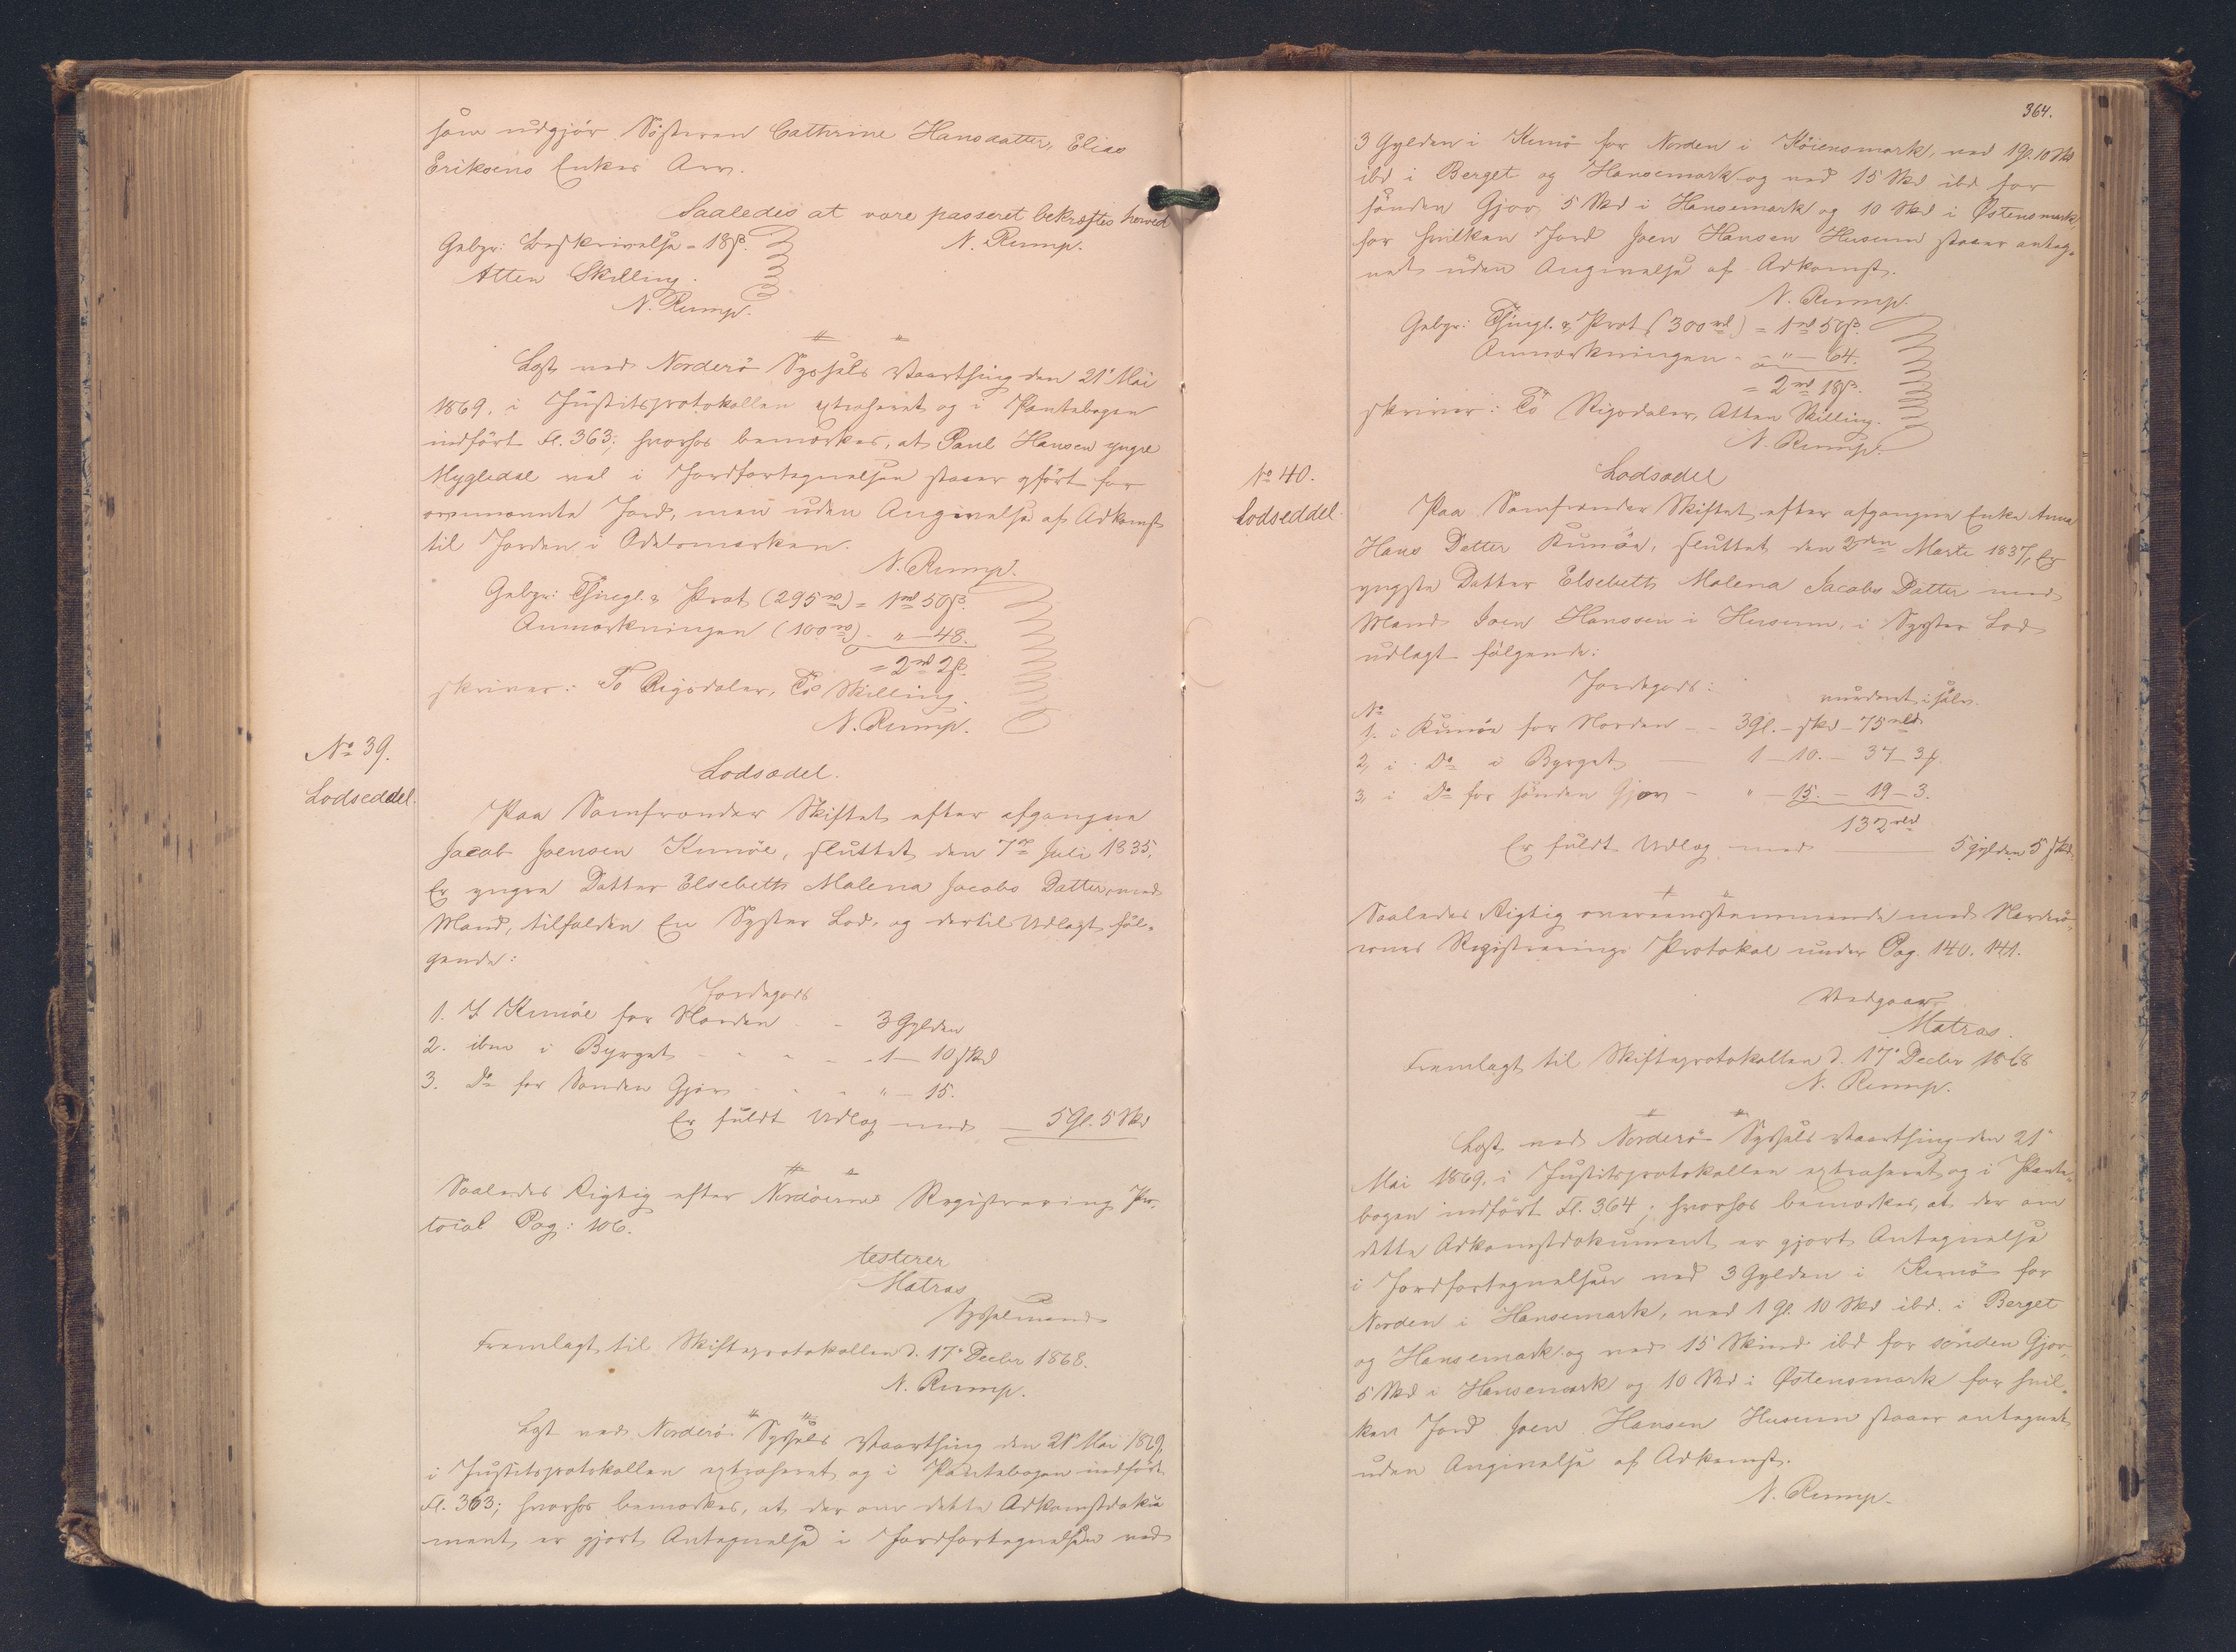 som udgjör Sösteren Cathrine Hansdatter, Elias
Eriksens Enkes Arv.
Saaledes at være passeret bekræftes herved
N. Rump.
Gebyr: Beskrivelse = 18 ß.
Atten Skilling.
N. Rump.
Læst ved Norderö Syssels Vaarthing den 21' Mai
1869, i Justitsprotokollen extraheret og i Pantebogen
indfört Fl. 363; hvorhos bemærkes, at Poul Hansen yngre
Mygledal vel i Jordfortegnelsen staaer opfört for
ovennævnte Jord, men uden Angivelse af Adkomst
til Jorden i Odelsmarken.
N. Rump.
Gebyr: Thingl. & Prot (295 rd) = 1 rd 50 ß.
Anmærkningen (100 rd) - " - 48.
= 2 rd 2 ß.
skriver: To Rigsdaler, To Skilling.
N. Rump.
No 39.
Lodseddel.
Lodsædel.
Paa Samfrænder Skiftet efter afgangne
Jacob Joensen Kunöe, sluttet den 7de Juli 1835,
Er yngre Datter Elsebeth Malena Jacobs Datter, med
Mand, tilfalden En Syster Lod, og dertil Udlagt föl-
gende:
Jordegods
1. I Kunöe for Norden - - 3 Gylden
2. ibm i Byrget - - - - 1 - 10 skd
3. Do for Sonden Gjov - - " - 15.
Er fuldt Udlæg med - 5 Gl. 5 Skd
Saaledes Rigtig efter Nordöernes Registrering Pro-
tocol Pag: 106.
testerer
Matras
Sysselmand
Fremlagt til Skifteprotokollen d. 17' Decbr 1868.
N. Rump.
Læst ved Norderö Syssels Vaarthing den 21' Mai 1869,
i Justitsprotokollen extraheret og i Pantebogen indfört
Fl. 363; hvorhos bemærkes, at der om dette Adkomstdoku
ment, er gjort Antegnelse i Jordfortegnelsen ved
364.
3 Gylden i Kunö for Norden i Köiensmark, ved 1 Gl. 10 Skd
ibd i Berget og Hansemark og ved 15 Skd ibd for
sönden Gjov 5 Skd i Hansemark og 10 Skd i Østensmark,
for hvilken Jord Joen Hansen Husum staaer anteg-
net uden Angivelse af Adkomst.
N. Rump.
Gebyr: Thingl. & Prot (300 rd) = 1 rd 50 ß.
Anmærkningen - - " - 64.
= 2 rd 18 ß.
skriver: To Rigsdaler, Atten Skilling.
N. Rump.
No 40.
Lodseddel.
Lodsædel
Paa Samfrænder Skiftet efter afgangne Enke Anna
Hans Datter Kunöe, sluttet den 2den Marts 1837, Er
yngste Datter Elsebeth Malena Jacobs Datter med
Mand Joen Hanssen i Husum, i Syster Lod
udlagt fölgende:
Jordegods: vurderet i sölv.
No
1, i Kunöe for Norden - - 3 Gl. - skd - 75 rbd
2, i Do i Byrget - 1 - 10. - 37 - 3 ß.
3, i Do for sönden Gjov - " - 15. - 19 - 3.
132 rbd
Er fuldt Udlæg med - 5 gylden 5 skd.
Saaledes Rigtig overeensstemmende med Norderö-
ernes Registrerings Protokol under Pag. 140. 141.
Vedgaaer
Matras.
Fremlagt til Skifteprotokollen d. 17' Decbr 1868
N. Rump.
Læst ved Norderö Syssels Vaarthing den 21'
Mai 1869, i Justitsprotokollen extraheret og i Pante-
bogen indfört Fl. 364; hvorhos bemærkes, at der om
dette Adkomstdokument er gjort Antegnelse
i Jordfortegnelsen ved 3 Gylden i Kunö for
Norden i Hansemark, ved 1 Gl. 10 Skd ibd. i Berget
og Hansemark og ved 15 Skind ibd for sönden Gjov,
5 Skd i Hansemark og 10 Skd i Østensmark for hvil-
ken Jord Joen Hansen Husum staaer antegnet
uden Angivelse af Adkomst.
N. Rump.